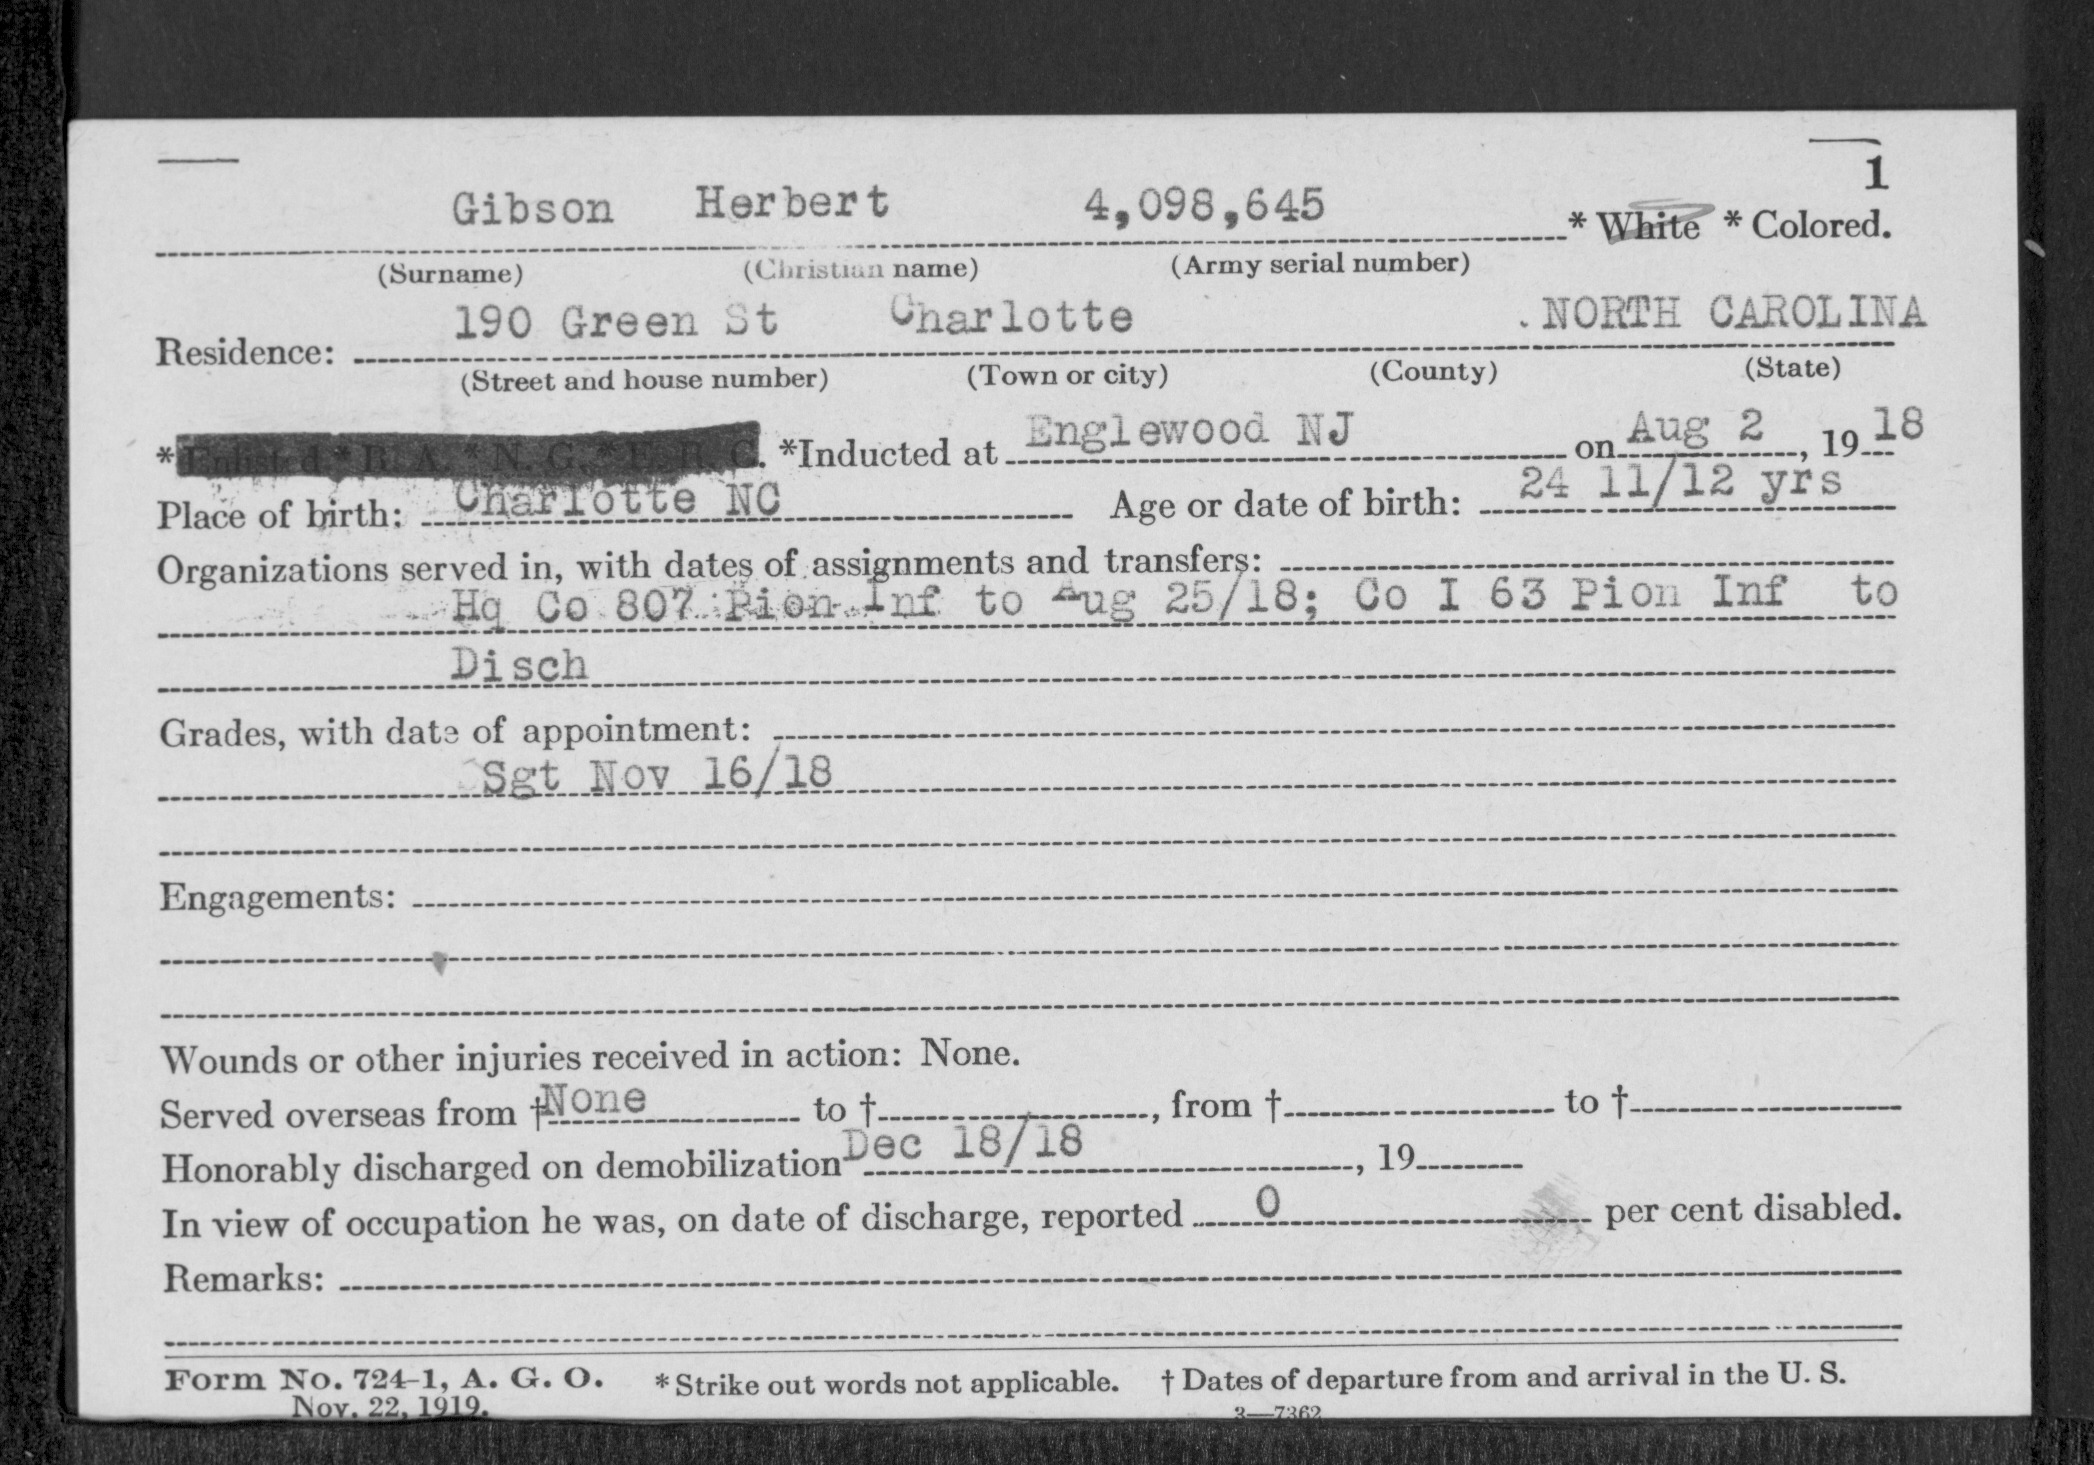 1
Gibson Herbert 4,098,645 * White * Colored.
(Surname) (Christian name) (Army serial number)
190 Green St Charlotte . NORTH CAROLINA
Residence:
(Street and house number) (Town or city) (County) (State)
* Enlisted * R. A. * N. G. * E. R. C. *Inducted at Englewood NJ on Aug 2, 1918
Place of birth: Charlotte NC Age or date of birth: 24 11/12 yrs
Organizations served in, with dates of assignments and transfers:
Hq Co 807 Pion Inf to Aug 25/18; Co I 63 Pion Inf to
Disch
Grades, with date of appointment:
Sgt Nov 16/18
Engagements:
Wounds or other injuries received in action: None.
Served overseas from † None to †, from † to †
Honorably discharged on demobilization Dec 18/18, 19
In view of occupation he was, on date of discharge, reported 0 per cent disabled.
Remarks:
Form No. 724-1, A. G. O. * Strike out words not applicable. † Dates of departure from and arrival in the U. S.
Nov. 22, 1919. 3—7362